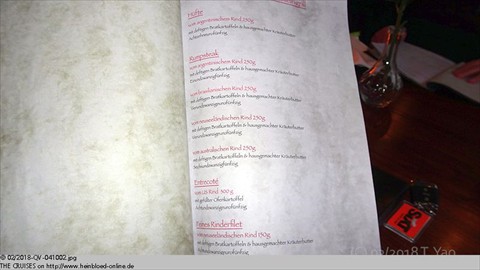 Hüfte
vom argentinischen Rind 250g
mit deftigen Bratkartoffeln & hausgemachter Kräuterbutter
Rumpsteak
vom argentinischen Rind 250g
mit deftigen Bratkartoffeln & hausgemachter Kräuterbutter
vom brasilianischen Rind 250g
mit deftigen Bratkartoffeln & hausgemachter Kräuterbutter
vom neuseeländischen Rind 250g
mit deftigen Bratkartoffeln & hausgemachter Kräuterbutter
vom australischen Rind 250g
mit deftigen Bratkartoffeln & hausgemachter Kräuterbutter
Entrecote
vom US Rind 300 g
mit gefüllter Ofenkartoffel
Rinderfilet
vom neuseeländischen Rind 150g
mit deftigen Bratkartoffeln & hausgemachter Kräuterbutter
02/2018 T. Yao
© 02/2018-QV-041002.jpg
THE CRUISES on http://www.heinbloed-online.de